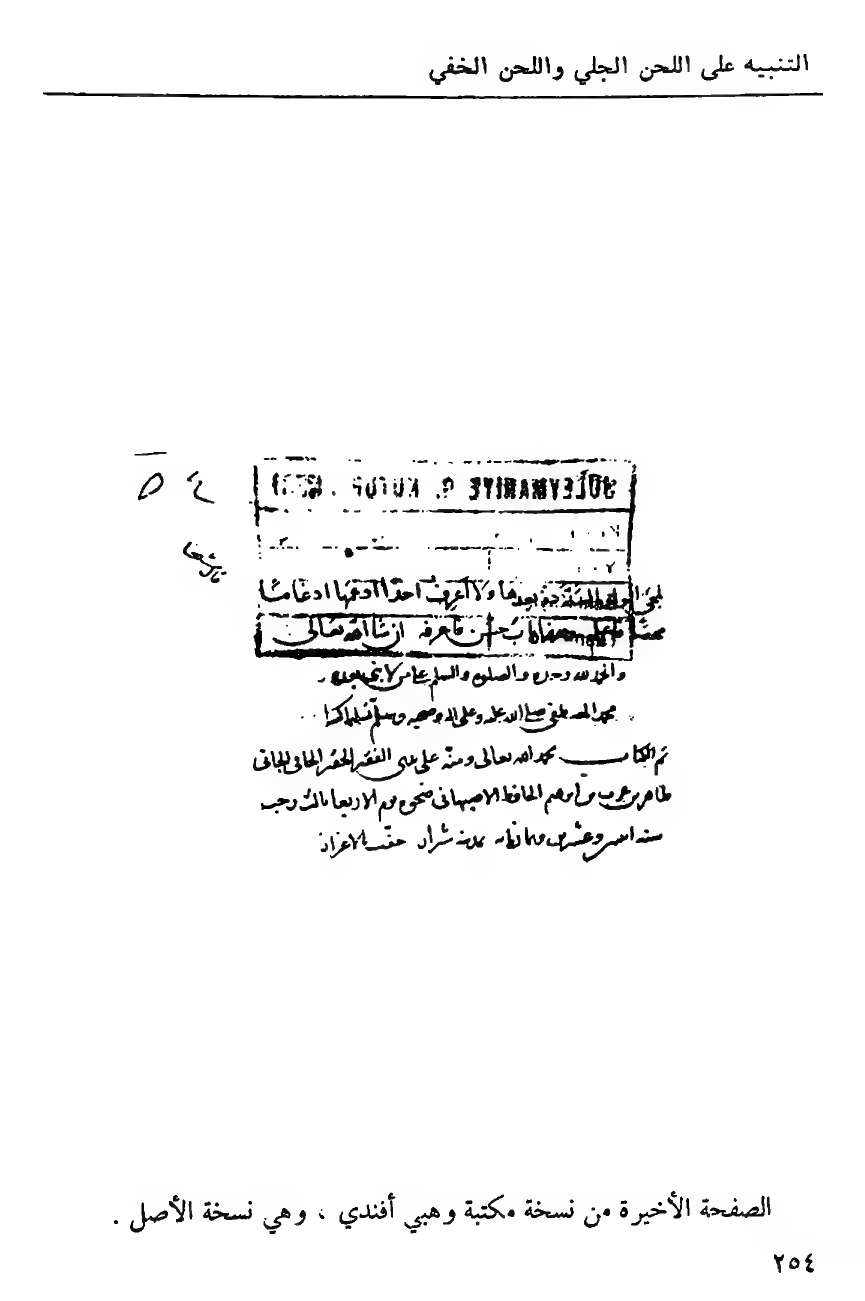 التنبيه على اللحن الجلي واللحن الخفي
SÜLEYMANİYE G. KÜTÜP
بعدها ولا أعرف احدًا ادغمها ادغامًا
باب حسن فاعرفه ان شا الله تعالى
والحمد لله وحده والصلوة والسلم على من لا نبي بعده
محمد المصطفى صلى الله عليه وعلى اله وصحبه وسلم تسليما كثيرا
تم الكتاب بحمد الله تعالى ومنه على يدي الفقير الحقير الجاني
طاهر بن عرب بن ابرهيم الحافظ الاصبهاني ضحوة يوم الاربعا ثالث رجب
سنه اثنين وعشرين وثمانمائه بمدينه شيراز حفت بالاعزاز
الصفحة الأخيرة من نسخة مكتبة وهبي أفندي ، وهي نسخة الأصل .
٢٥٤